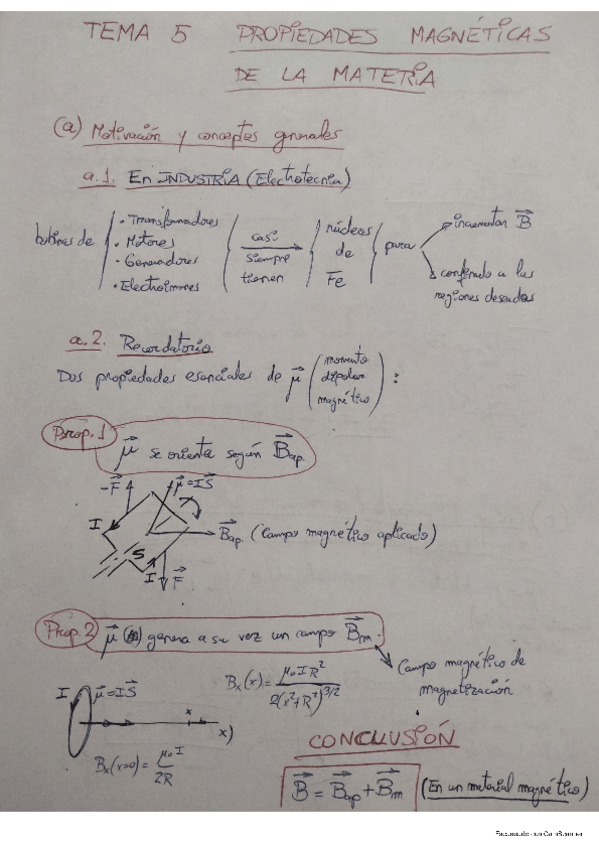 TEMA 5 PROPIEDADES MAGNÉTICAS
DE LA MATERIA
(a) Motivación y conceptos generales
a.1. En INDUSTRIA (Electrotecnia)
bobinas de
· Transformadores
· Motores
· Generadores
· Electroimanes
casi
siempre
tienen
núcleos
de
Fe
para
incrementar B⃗
confinarlo a las
regiones deseadas
a.2. Recordatorio
Dos propiedades esenciales de μ⃗ (momento dipolar magnético) :
Prop.1
μ⃗ se orienta según B⃗ap.
-F⃗
μ⃗=IS⃗
I
S
I
F⃗
B⃗ap. (Campo magnético aplicado)
Prop.2
μ⃗ genera a su vez un campo B⃗m.
Campo magnético de
magnetización
I
μ⃗=IS⃗
x
x)
Bx(x) = μ₀IR² / 2(x²+R²)^3/2
Bx(x=0) = μ₀I / 2R
CONCLUSIÓN
B⃗ = B⃗ap + B⃗m (En un material magnético)
Escaneado con CamScanner